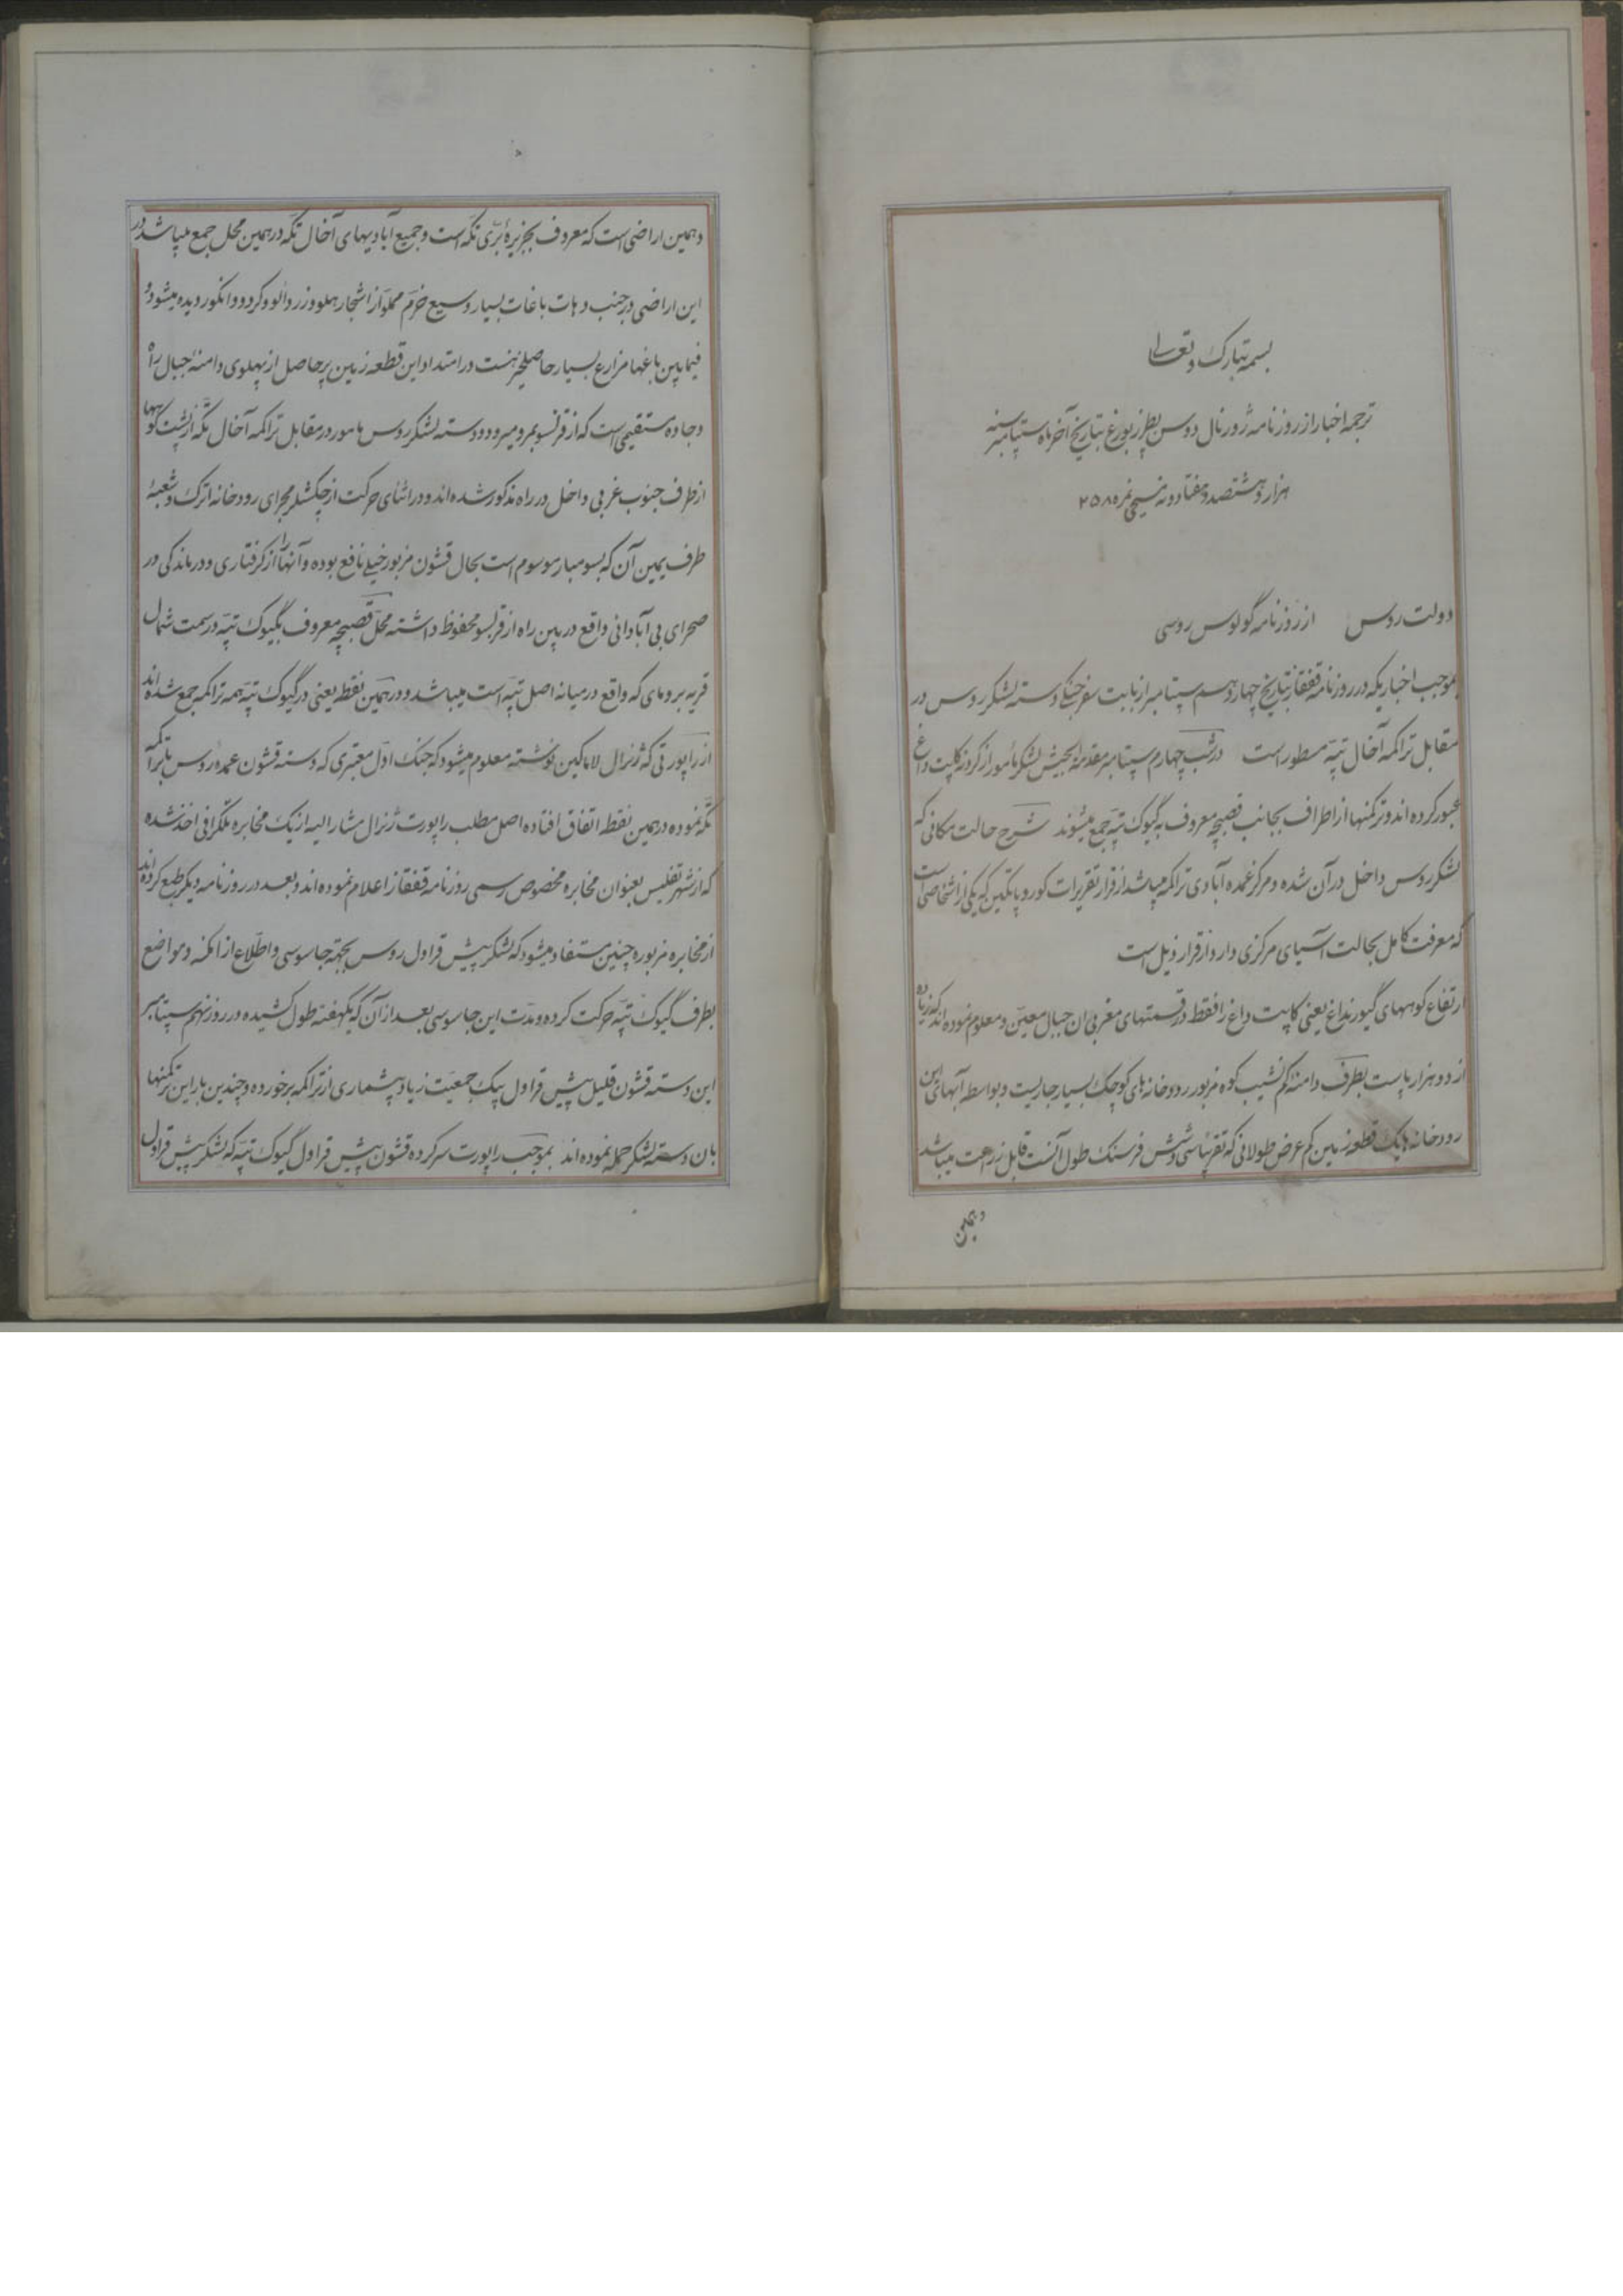 بسمه تبارک و تعالی
ترجمه اخبار از روزنامه ژورنال دوسن پطرزبورغ بتاریخ آخر ماه سپتامبر سنه
هزار و هشتصد و هفتاد و نه مسیحی نمره ۲۵۸
دولت روس از روزنامه گولوس روسی
بموجب اخباریکه در روزنامه قفقاز بتاریخ چهاردهم سپتامبر از بابت سفر جنگی دسته لشکر روس در
مقابل تراکمه آخال تپه مسطور است در شب چهارم سپتامبر مقدمة الجیش لشکر مأمور از گردنه کپت داغ
عبور کرده اند و ترکمنها از اطراف بجانب قصبچه معروف به گیوک تپه جمع میشوند شرح حالت مکانی که
لشکر روس داخل در آن شده و مرکز عمده آبادی تراکمه میباشد از قرار تقریرات کوروپاتکین که یکی از اشخاصی است
که معرفت کامل بحالت آسیای مرکزی دارد از قرار ذیل است
ارتفاع کوههای گیورنداغ یعنی کاپت داغ را فقط در قسمتهای مغربی ان جبال معین و معلوم نموده اند که زیاده
از دو هزار پاست بطرف دامنه کم نشیب کوه مزبور رودخانه های کوچک بسیار جاریست و بواسطه آبهای این
رودخانه ها یک قطعه زمین کم عرض طولانی که تقریباً سی و شش فرسنگ طول آنست قابل زراعت میباشد
وهمین
وهمین اراضی است که معروف بجزیرهٔ برّی تکّه است و جمیع آبادیهای آخال تکه در همین محل جمع میباشد در
این اراضی در جنب دهات باغات بسیار وسیع خرّم مملوّ از اشجار هلو و زردآلو و گردو و انگور دیده میشود و
فیمابین باغها مزارع بسیار حاصلخیز هست در امتداد این قطعه زمین پرحاصل از پهلوی دامنهٔ جبال راه
و جاده مستقیمی است که از قزلسو بمرو میرود و دسته لشکر روس مامور در مقابل تراکمه آخال تکّه از پشت کوهها
از طرف جنوب غربی داخل در راه مذکور شده اند و در اثنای حرکت از چکشلر مجرای رودخانه اترک و شعبهٔ
طرف یمین آن که بسومبار موسوم است بحال قشون مزبور خیلی نافع بوده و آنها را از گرفتاری و درماندگی در
صحرای بی آب و آبادانی واقع در بین راه از قزلسو محفوظ داشته محلّ قصبچه معروف بگیوک تپه در سمت شمال
قریه بروماى که واقع در میانه اصل تپه است میباشد و در همین نقطه یعنی در گیوک تپه همه تراکمه جمع شده اند
از راپورتی که ژنرال لاماکین نوشته معلوم میشود که جنگ اوّل معتبری که دسته قشون عمدهٔ روس با تراکمه
تکّه نموده در همین نقطه اتفاق افتاده اصل مطلب راپورت ژنرال مشارالیه از یک مخابره تلگرافی اخذ شده
که از شهر تفلیس بعنوان مخابره مخصوص رسمی روزنامه قفقاز اعلام نموده اند و بعد در روزنامه دیگر طبع کرده اند
از مخابره مزبوره چنین مستفاد میشود که لشکر پیش قراول روس بجهة جاسوسی و اطّلاع از امکنه و مواضع
بطرف گیوک تپه حرکت کرده و مدّت این جاسوسی بعد از آن که یکهفته طول کشیده در روز نهم سپتامبر
این دسته قشون قلیل پیش قراول بیک جمعیّت زیاد بیشماری از تراکمه برخورده و چندین بار این ترکمنها
بان دسته لشکر حمله نموده اند بموجب راپورت سرکرده قشون پیش قراول گیوک تپه که لشکر پیش قراول